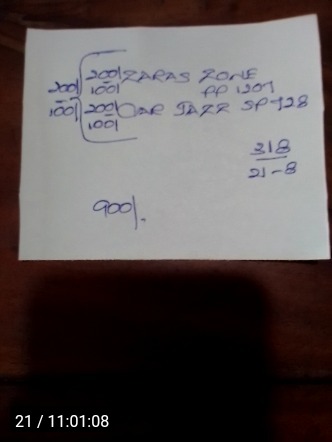 200/ ZARAS ZONE
100/ PP 1207
200/
100/
200/ OAR JAZZ SP 928
100/
318
21-8
900/.
21 / 11:01:08